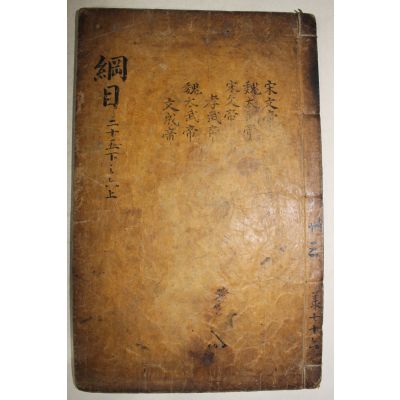 宋文帝
魏太武帝
宋文帝
孝武帝
魏太武帝
文成帝
綱目
二十五下之六上